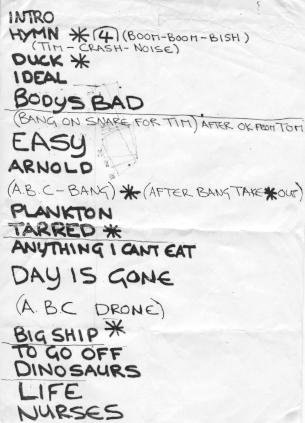 INTRO
HYMN * 4 (BOOM-BOOM-BISH)
(TIM-CRASH-NOISE)
DUCK *
IDEAL
BODYS BAD
(BANG ON SNARE FOR TIM) AFTER OK FROM TOM
EASY
ARNOLD
(A.B.C-BANG) * (AFTER BANG TAKE * OUT)
PLANKTON
TARRED *
ANYTHING I CANT EAT
DAY IS GONE
(A.B.C DRONE)
BIG SHIP *
TO GO OFF
DINOSAURS
LIFE
NURSES